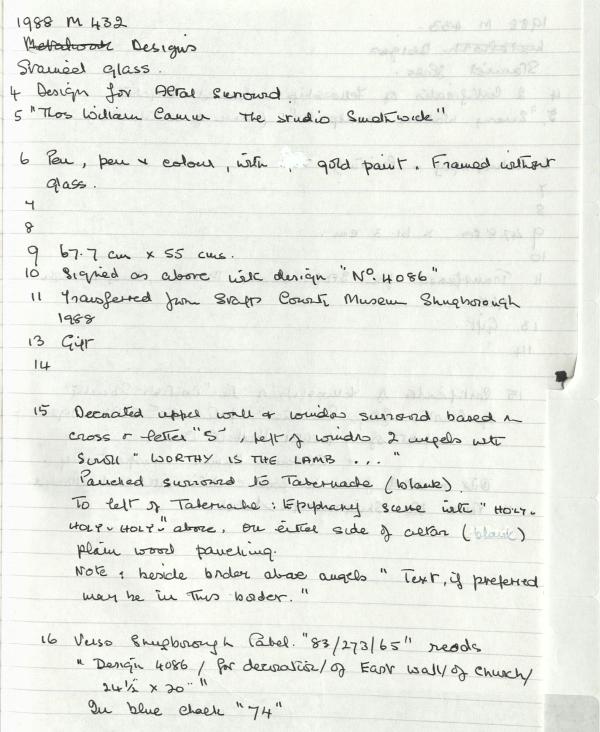 1988 M 432
Metalwork Designs
Stained glass.
4 Design for Altar Surround.
5 "Thos William Camm The Studio Smethwick"
6 Pen, pen & colour, with gold paint. Framed without
glass.
7
8
9 67.7 cm x 55 cms.
10 Signed as above with design "No. 4086"
11 Transferred from Staffs County Museum Shugborough
1988
13 Gift
14
15 Decorated upper wall & window surround based on
cross & letter "S", left of window 2 angels with
scroll "WORTHY IS THE LAMB ..."
Panelled surround to Tabernacle (blank).
To left of Tabernacle: Epiphany scene with "HOLY-
HOLY-HOLY" above. On either side of altar (blank)
plain wood panelling.
Note: beside border above angels "Text, if preferred
may be in this border."
16 Verso Shugborough Label. "83/273/65" reads
"Design 4086 / for decoration / of East wall / of Church /
24½ x 20" "
In blue chalk "74"